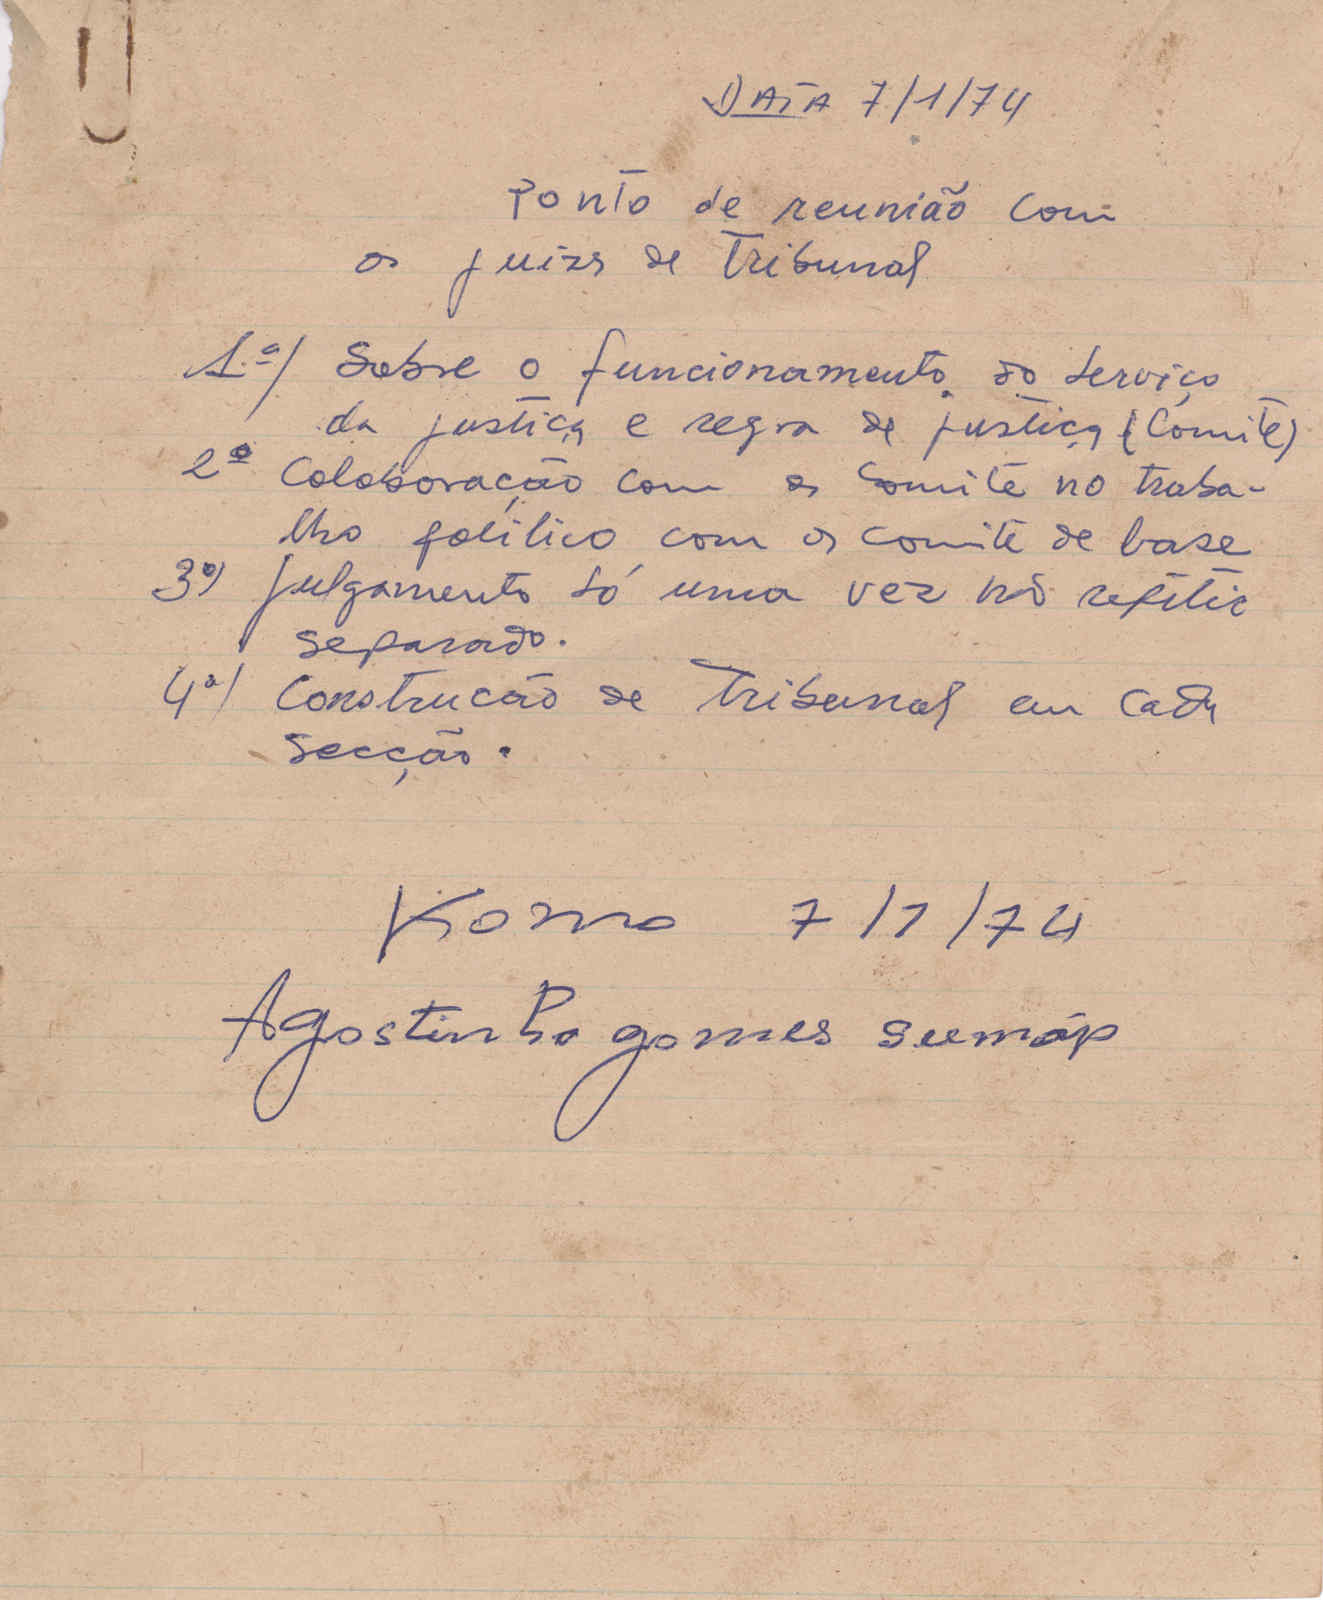 DATA 7/1/74
Ponto de reunião com
os juizs de Tribunal
1.º/ Sobre o funcionamento do serviço
da justiça e regra de justiça (Comité)
2º Colaboração com os Comité no traba-
lho político com os comité de base
3º) julgamento só uma vez não repitir
separado.
4º/ Construcão de Tribunal em cada
secção.
7/1/74
Agostinho gomes sumáp